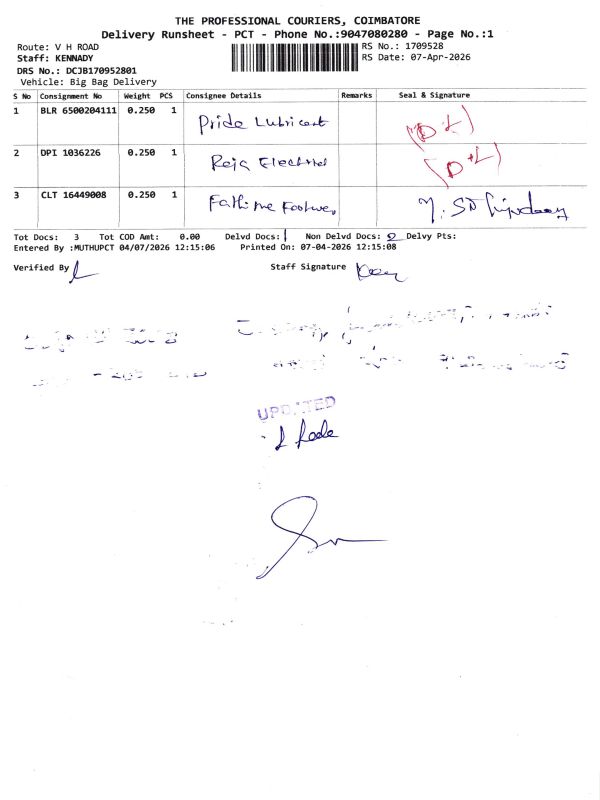 THE PROFESSIONAL COURIERS, COIMBATORE
Delivery Runsheet - PCT - Phone No.:9047080280 - Page No.:1
Route: V H ROAD
RS No.: 1709528
Staff: KENNADY
RS Date: 07-Apr-2026
DRS No.: DCJB170952801
Vehicle: Big Bag Delivery
S No Consignment No Weight PCS Consignee Details Remarks Seal & Signature
1 BLR 6500204111 0.250 1 Pride Lubricant (D+L)
2 DPI 1036226 0.250 1 Raja (D+L)
3 CLT 16449008 0.250 1
Tot Docs: 3 Tot COD Amt: 0.00 Delvd Docs: 1 Non Delvd Docs: 2 Delvy Pts:
Entered By :MUTHUPCT 04/07/2026 12:15:06 Printed On: 07-04-2026 12:15:08
Verified By
Staff Signature
UPDATED